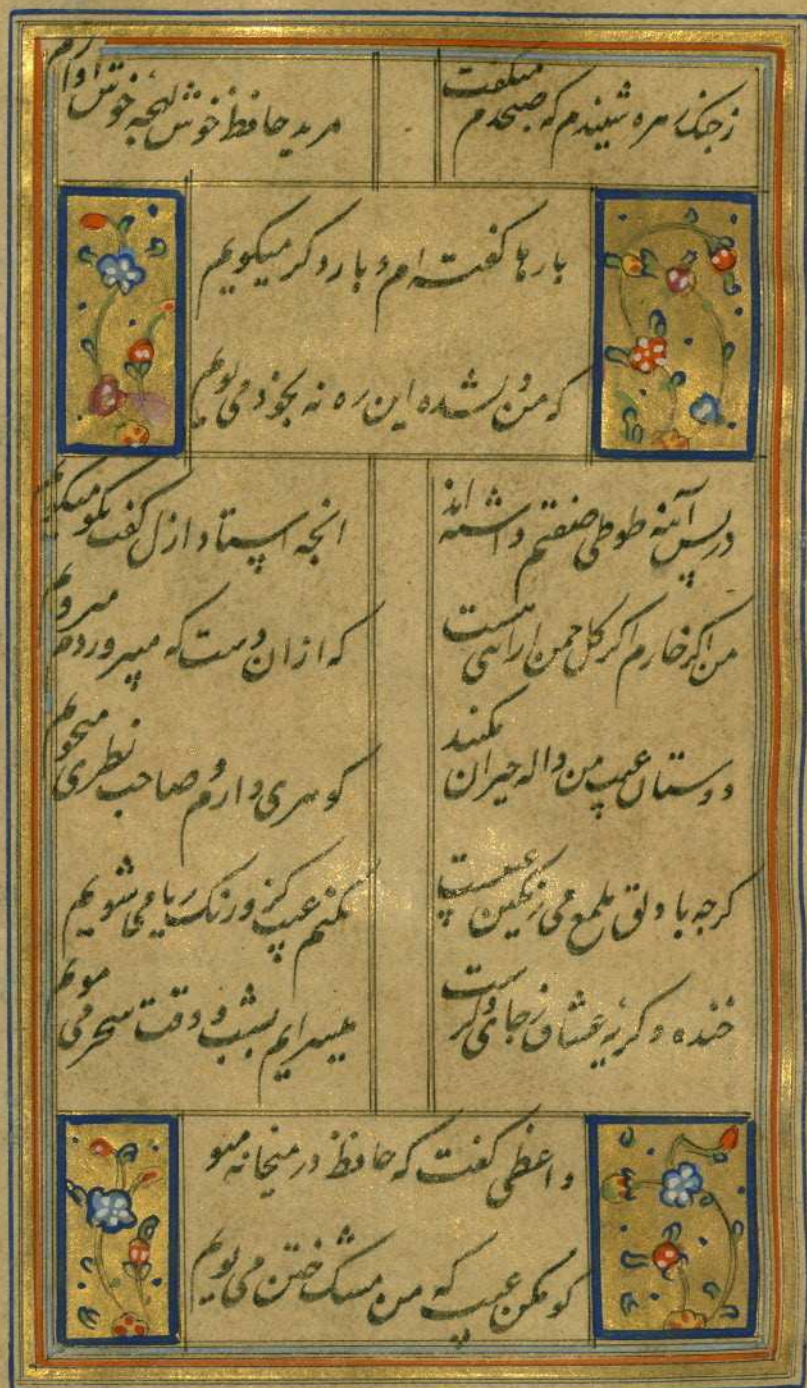 ز جنک زهره شنیدم که صبحدم میکفت
مرید حافظ خوش لهجه خوش آوازم
بارها کفته ام و بار دکر میکویم
که من دلشده این ره نه بخود می پویم
در پس آینه طوطی صفتم داشته اند
انجه استاد ازل کفت بکو میکویم
من اکر خارم اکر کل جمن ارائی هست
که ازان دست که میپروردم میرویم
دوستان عیب من واله حیران مکنید
کوهری دارم و صاحب نظری میجویم
کرجه با دلق ملمع می رنکین عیبست
مکنم عیب کزو رنک ریا می شویم
خنده و کریه عشاق ز جای دکرست
میسرایم بشب و وقت سحر می مویم
واعظی کفت که حافظ در میخانه مبو
کو مکن عیب که من مشک ختن می بویم